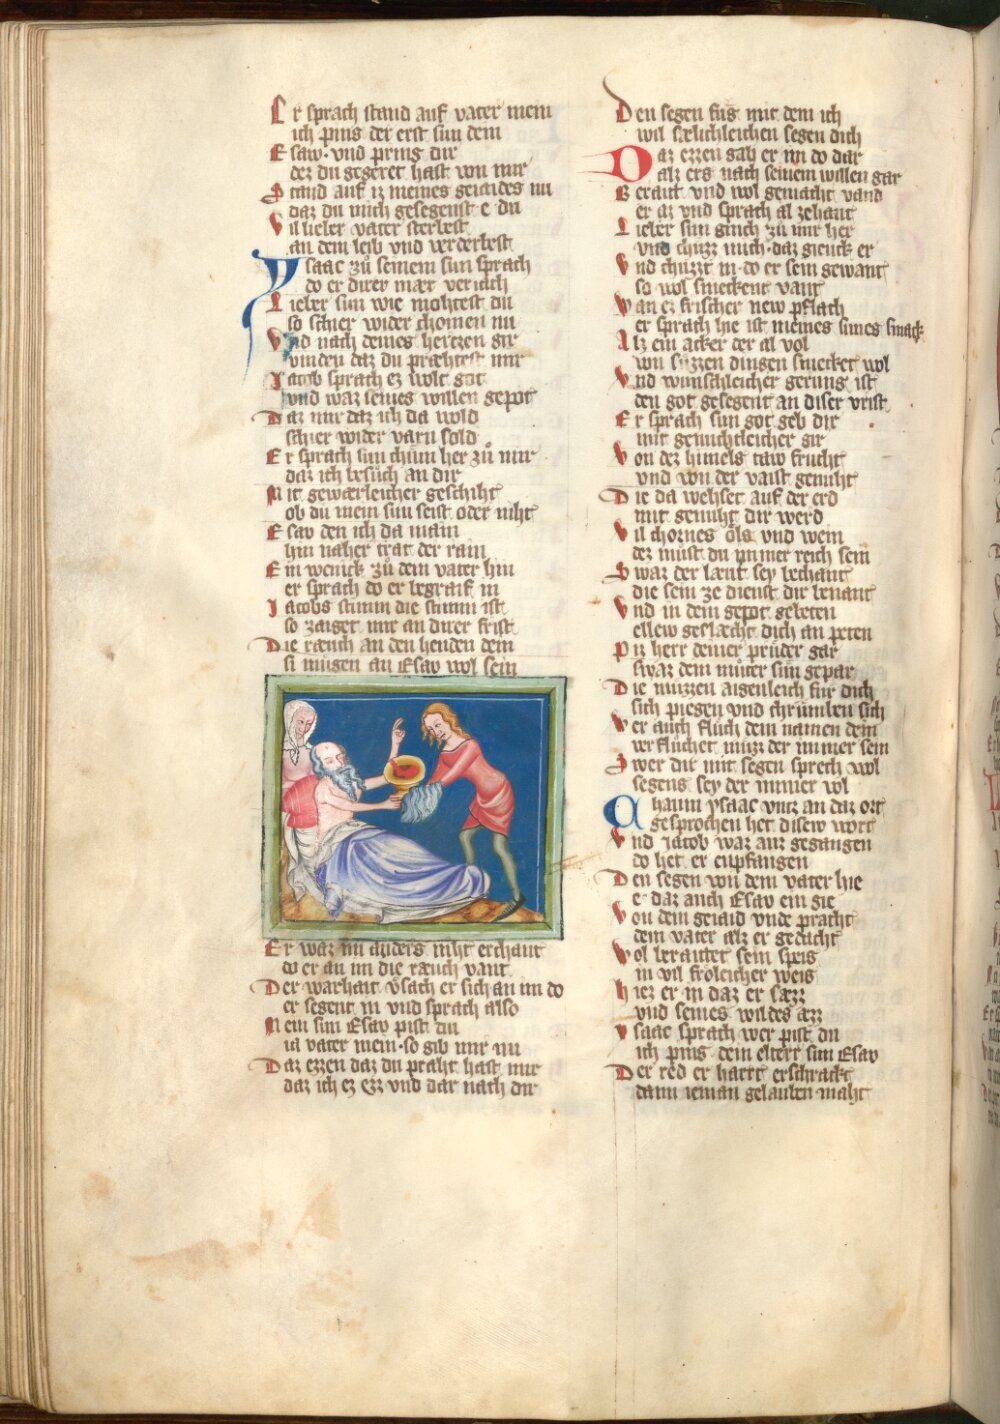 Er sprach stand auf vater mein
ich pins der erst sun dein
Esaw vnd prins dir
dez du gegeret hast von mir
Stand auf iz meines geiaides nu
daz du mich gesegenst e du
Vil lieber vater sterbest
an dem leib vnd verderbest
Ysaac zů seinem sun sprach
do er direr mær veriach
Lieber sun wie mohtest du
so schier wider chomen nu
Vnd nach deines hertzen gir
vinden daz du præhtest mir
Jacob sprach ez wolt got
vnd waz seines willen gepot
Daz mir daz ich da wold
schier wider varn sold
Er sprach sun chum her zů mir
daz ich besůch an dir
Mit gewærleicher geschiht
ob du mein sun seist oder niht
Esav den ich da main
hin naher trat der rain
Ein wenick zů dem vater hin
er sprach do er begraif in
Jacobs stimm die stimm ist
so zaiget mir an direr frist
Die ræuch an den henden dein
si mügen an Esav wol sein
Er waz im anders niht erchant
do er an im die ræuch vant
Der warhait vrsach er sich an im do
er segent in vnd sprach also
Mein sun Esav pist du
ia vater mein so gib mir nu
Daz ezzen daz du praht hast mir
daz ich ez ezz vnd dar nach dir
Den segen fůg mit dem ich
wil sælichleichen segen dich
Daz ezzen gab er im do dar
alz ers nach seinem willen gar
Berait vnd wol gemacht vand
er az vnd sprach al zehant
Lieber sun ginch zů mir her
vnd chuzz mich daz gienck er
Vnd chuzzt in do er sein gewant
so wol smeckent vant
Wan ez frischer new pflach
er sprach hie ist meines sunes smack
Alz ein acker der al vol
von sůzzen dingen smecket wol
Vnd wunschleicher gerung ist
den got gesegent an diser vrist
Er sprach sun got geb dir
mit genuchtleicher gir
Von dez himels taw frucht
vnd von der vaist genuht
Die da wehset auf der erd
mit genuht dir werd
Vil chornes öls vnd wein
dez můst du ymmer reich sein
Swaz der læut sey bechant
die sein ze dienst dir benant
Vnd in dem gepot gebeten
ellew geslæcht dich an peten
Piz herr deiner prüder gar
swaz deim můter sün gepar
Die müzzen aigenleich für dich
sich piegen vnd chrümben sich
Wer auch flůch dem namen dein
verflůchet můz der immer sein
Swer dir mit segen sprech wol
segens sey der immer vol
Chaum ysaac vntz an daz ort
gesprochen het disew wort
Vnd Jacob waz auz gegangen
do het er enpfangen
Den segen von dem vater hie
e daz auch Esav ein gie
Von dem geiaid vnde pracht
dem vater alz er gedacht
Wol beraitet sein speis
in vil fröleicher weis
Hiez er in daz er sæzz
vnd seines wildes æzz
Ysaac sprach wer pist du
ich pins dein eltert sun Esav
Der red er hartt erschrackt
dann ieman gelauben maht